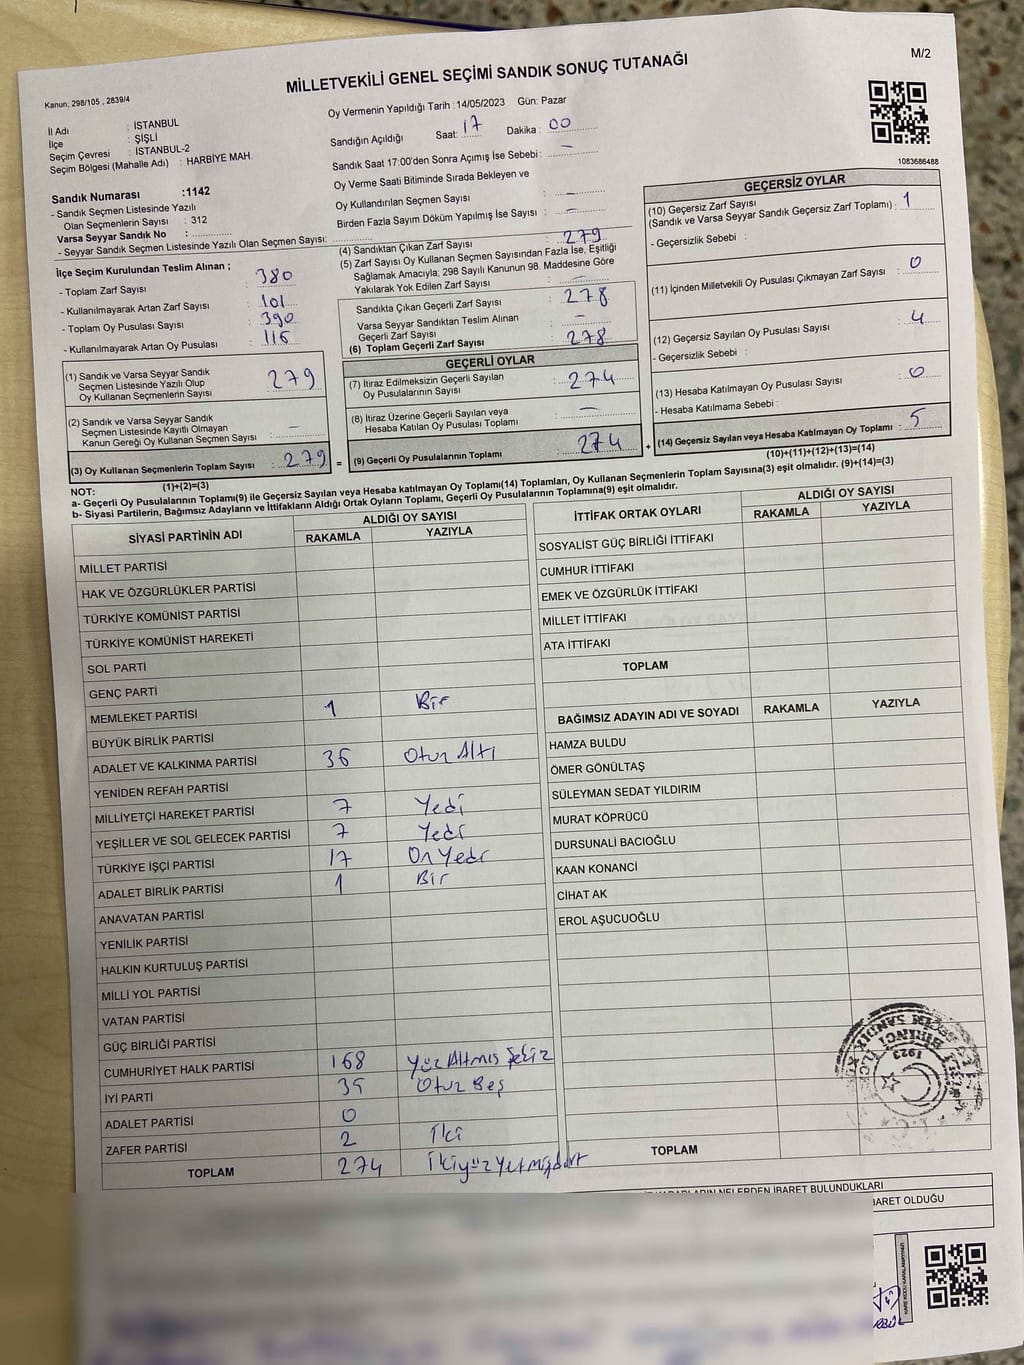 MİLLETVEKİLİ GENEL SEÇİMİ SANDIK SONUÇ TUTANAĞI
M/2
Kanun; 298/105 , 2839/4
İl Adı : İSTANBUL
İlçe : ŞİŞLİ
Seçim Çevresi : İSTANBUL-2
Seçim Bölgesi (Mahalle Adı) : HARBİYE MAH.
Oy Vermenin Yapıldığı Tarih :14/05/2023 Gün: Pazar
Sandığın Açıldığı Saat: 17 Dakika : 00
Sandık Saat 17:00'den Sonra Açımış İse Sebebi : –
Oy Verme Saati Bitiminde Sırada Bekleyen ve
Oy Kullandırılan Seçmen Sayısı : –
Birden Fazla Sayım Döküm Yapılmış İse Sayısı : –
1083686488
Sandık Numarası :1142
- Sandık Seçmen Listesinde Yazılı
Olan Seçmenlerin Sayısı : 312
Varsa Seyyar Sandık No :
- Seyyar Sandık Seçmen Listesinde Yazılı Olan Seçmen Sayısı:
İlçe Seçim Kurulundan Teslim Alınan ;
- Toplam Zarf Sayısı : 380
- Kullanılmayarak Artan Zarf Sayısı : 101
- Toplam Oy Pusulası Sayısı : 390
- Kullanılmayarak Artan Oy Pusulası : 116
(1) Sandık ve Varsa Seyyar Sandık
Seçmen Listesinde Yazılı Olup
Oy Kullanan Seçmenlerin Sayısı : 279
(2) Sandık ve Varsa Seyyar Sandık
Seçmen Listesinde Kayıtlı Olmayan
Kanun Gereği Oy Kullanan Seçmen Sayısı : –
(3) Oy Kullanan Seçmenlerin Toplam Sayısı : 279 =
(1)+(2)=(3)
(4) Sandıktan Çıkan Zarf Sayısı : 279
(5) Zarf Sayısı Oy Kullanan Seçmen Sayısından Fazla İse, Eşitliği
Sağlamak Amacıyla; 298 Sayılı Kanunun 98. Maddesine Göre
Yakılarak Yok Edilen Zarf Sayısı : –
Sandıkta Çıkan Geçerli Zarf Sayısı : 278
Varsa Seyyar Sandıktan Teslim Alınan
Geçerli Zarf Sayısı : –
(6) Toplam Geçerli Zarf Sayısı : 278
GEÇERLİ OYLAR
(7) İtiraz Edilmeksizin Geçerli Sayılan
Oy Pusulalarının Sayısı : 274
(8) İtiraz Üzerine Geçerli Sayılan veya
Hesaba Katılan Oy Pusulası Toplamı : –
(9) Geçerli Oy Pusulalarının Toplamı : 274 +
GEÇERSİZ OYLAR
(10) Geçersiz Zarf Sayısı
(Sandık ve Varsa Seyyar Sandık Geçersiz Zarf Toplamı) : 1
- Geçersizlik Sebebi :
(11) İçinden Milletvekili Oy Pusulası Çıkmayan Zarf Sayısı : 0
(12) Geçersiz Sayılan Oy Pusulası Sayısı : 4
- Geçersizlik Sebebi :
(13) Hesaba Katılmayan Oy Pusulası Sayısı : 0
- Hesaba Katılmama Sebebi :
(14) Geçersiz Sayılan veya Hesaba Katılmayan Oy Toplamı : 5
(10)+(11)+(12)+(13)=(14)
NOT:
a- Geçerli Oy Pusulalarının Toplamı(9) ile Geçersiz Sayılan veya Hesaba Katılmayan Oy Toplamı(14) Toplamları, Oy Kullanan Seçmenlerin Toplam Sayısına(3) eşit olmalıdır. (9)+(14)=(3)
b- Siyasi Partilerin, Bağımsız Adayların ve İttifakların Aldığı Ortak Oyların Toplamı, Geçerli Oy Pusulalarının Toplamına(9) eşit olmalıdır.
SİYASİ PARTİNİN ADI ALDIĞI OY SAYISI
RAKAMLA YAZIYLA
MİLLET PARTİSİ
HAK VE ÖZGÜRLÜKLER PARTİSİ
TÜRKİYE KOMÜNİST PARTİSİ
TÜRKİYE KOMÜNİST HAREKETİ
SOL PARTİ
GENÇ PARTİ
MEMLEKET PARTİSİ 1 Bir
BÜYÜK BİRLİK PARTİSİ
ADALET VE KALKINMA PARTİSİ 36 Otuz Altı
YENİDEN REFAH PARTİSİ
MİLLİYETÇİ HAREKET PARTİSİ 7 Yedi
YEŞİLLER VE SOL GELECEK PARTİSİ 7 Yedi
TÜRKİYE İŞÇİ PARTİSİ 17 On Yedi
ADALET BİRLİK PARTİSİ 1 Bir
ANAVATAN PARTİSİ
YENİLİK PARTİSİ
HALKIN KURTULUŞ PARTİSİ
MİLLİ YOL PARTİSİ
VATAN PARTİSİ
GÜÇ BİRLİĞİ PARTİSİ
CUMHURİYET HALK PARTİSİ 168 Yüz Altmış Sekiz
İYİ PARTİ 35 Otuz Beş
ADALET PARTİSİ 0
ZAFER PARTİSİ 2 İki
TOPLAM 274 İkiyüzyetmişdört
İTTİFAK ORTAK OYLARI ALDIĞI OY SAYISI
RAKAMLA YAZIYLA
SOSYALİST GÜÇ BİRLİĞİ İTTİFAKI
CUMHUR İTTİFAKI
EMEK VE ÖZGÜRLÜK İTTİFAKI
MİLLET İTTİFAKI
ATA İTTİFAKI
TOPLAM
BAĞIMSIZ ADAYIN ADI VE SOYADI RAKAMLA YAZIYLA
HAMZA BULDU
ÖMER GÖNÜLTAŞ
SÜLEYMAN SEDAT YILDIRIM
MURAT KÖPRÜCÜ
DURSUNALİ BACIOĞLU
KAAN KONANCİ
CİHAT AK
EROL AŞUCUOĞLU
TOPLAM
1923
NELERDEN İBARET BULUNDUKLARI
İBARET OLDUĞU